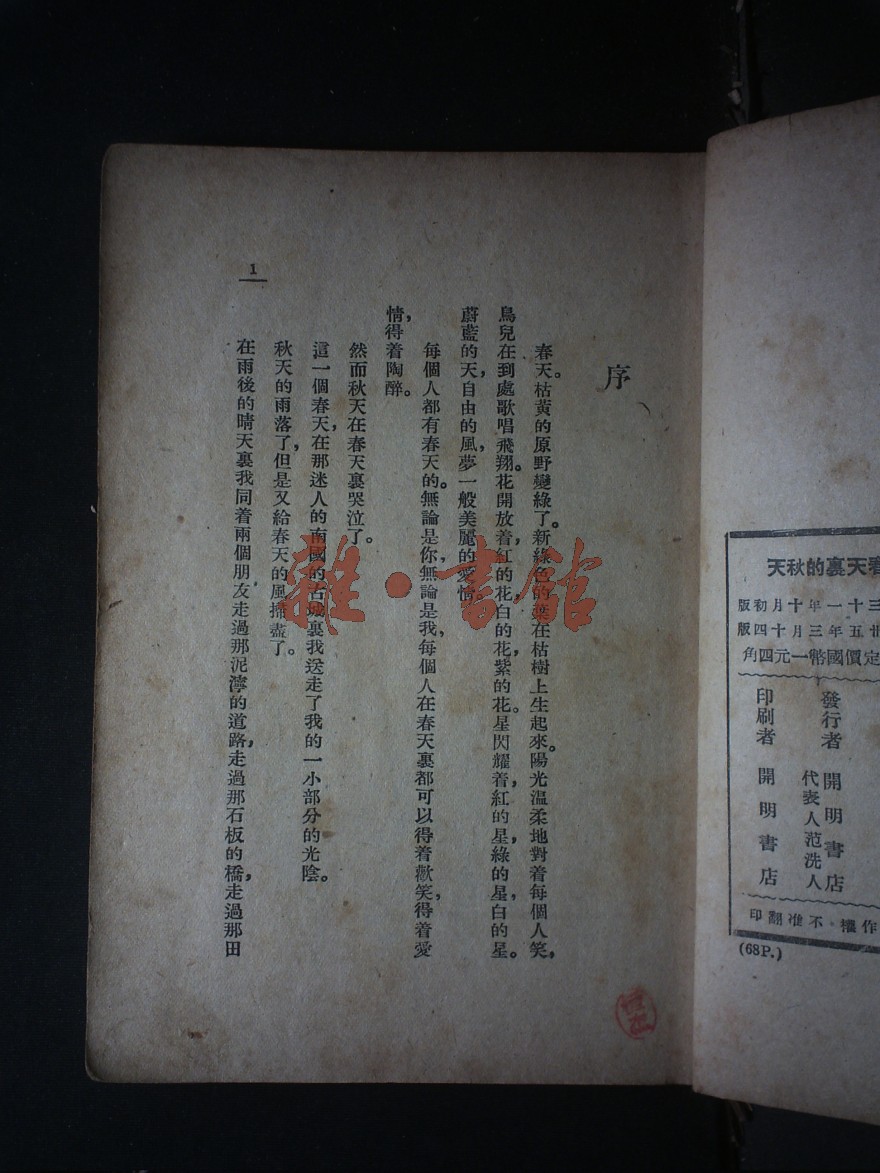 春天裏的秋天
三十一年十月初版
廿五年三月十四版
定價國幣一元四角
發行者 開明書店
代表人范洗人
印刷者 開明書店
作權・不准翻印
(68P.)
序
春天。枯黃的原野變綠了。新綠色的葉在枯樹上生起來。陽光温柔地對着每個人笑，
鳥兒在到處歌唱飛翔。花開放着，紅的花，白的花，紫的花。星閃耀着，紅的星，綠的星，白的星。
蔚藍的天，自由的風，夢一般美麗的愛情。
每個人都有春天的。無論是你，無論是我，每個人在春天裏都可以得着歡笑，得着愛
情，得着陶醉。
然而秋天在春天裏哭泣了。
這一個春天，在那迷人的南國的古城裏我送走了我的一小部分的光陰。
秋天的雨落了，但是又給春天的風掃盡了。
在雨後的晴天裏我同着兩個朋友走過那泥濘的道路，走過那石板的橋，走過那田
1
雜・書館